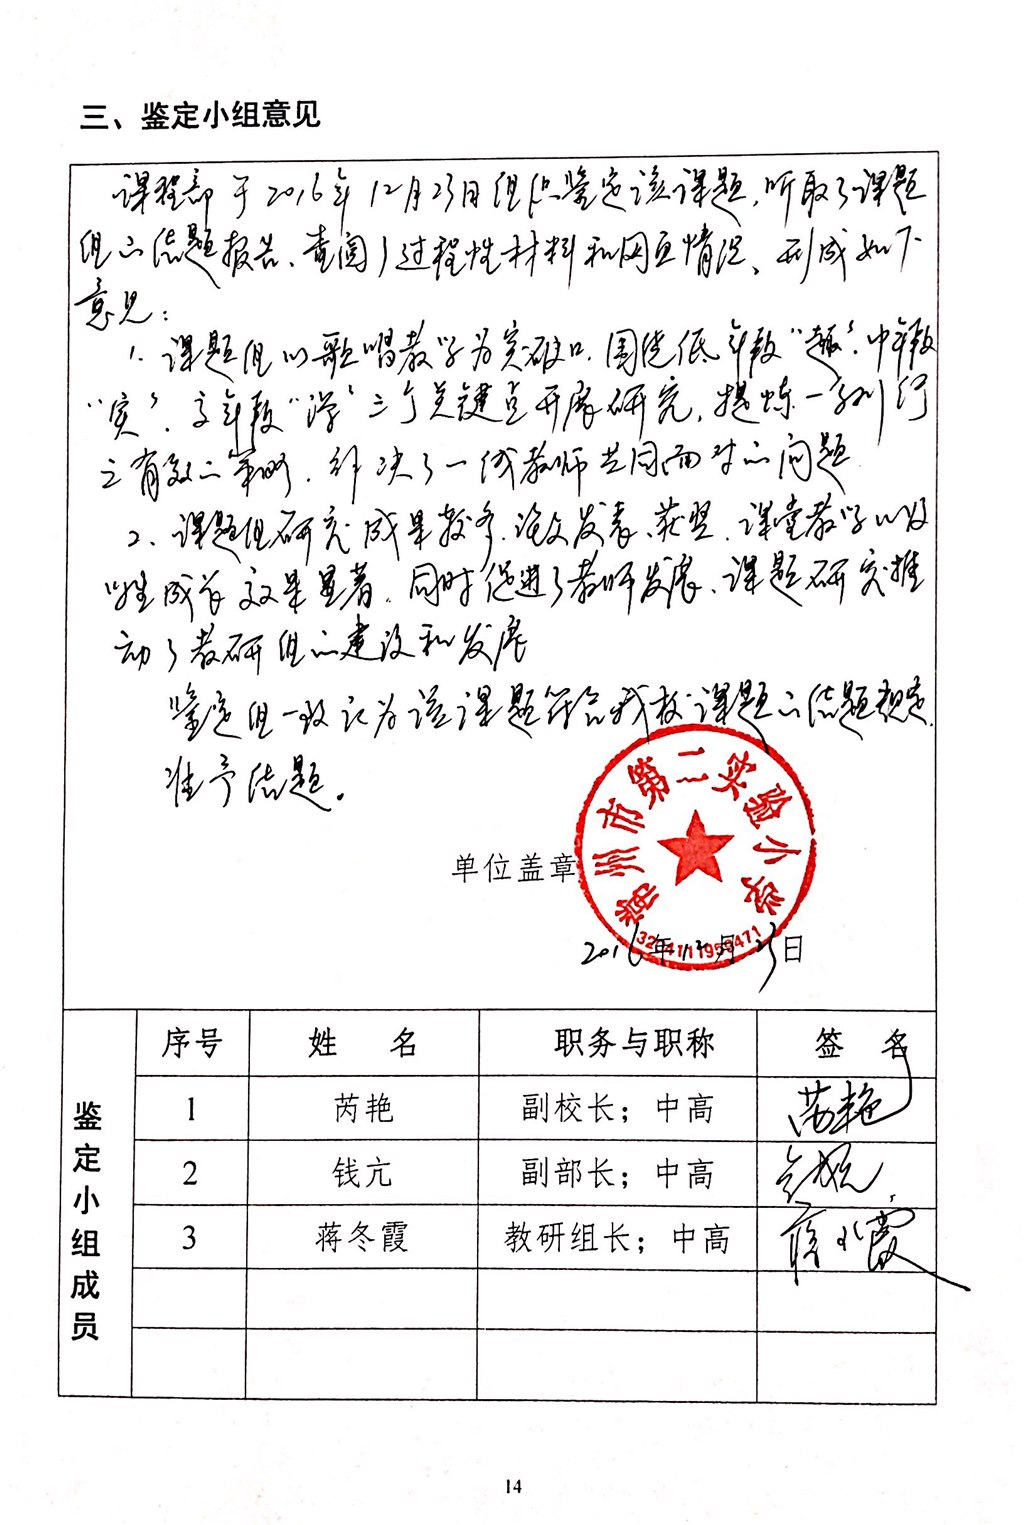 三、鉴定小组意见
课程部于2016年12月23日组织鉴定该课题,听取了课题
组的结题报告、查阅了过程性材料和网页情况、形成如下
意见:
1、课题组以歌唱教学为突破口,围绕低年段“趣”、中年段
“实”、高年段“学”三个关键点开展研究,提炼一系列行
之有效的策略,解决了一线教师共同面对的问题
2、课题组研究成果较多,论文发表、获奖、课堂教学以及
学生成长效果显著,同时促进了教师发展、课题研究推
动了教研组的建设和发展
鉴定组一致认为该课题符合我校课题的结题规定,
准予结题。
单位盖章
市第二实验小学
2016年12月23日
鉴定小组成员
序号 姓 名 职务与职称 签 名
1 芮艳 副校长;中高 芮艳
2 钱亢 副部长;中高
3 蒋冬霞 教研组长;中高 蒋冬霞
14